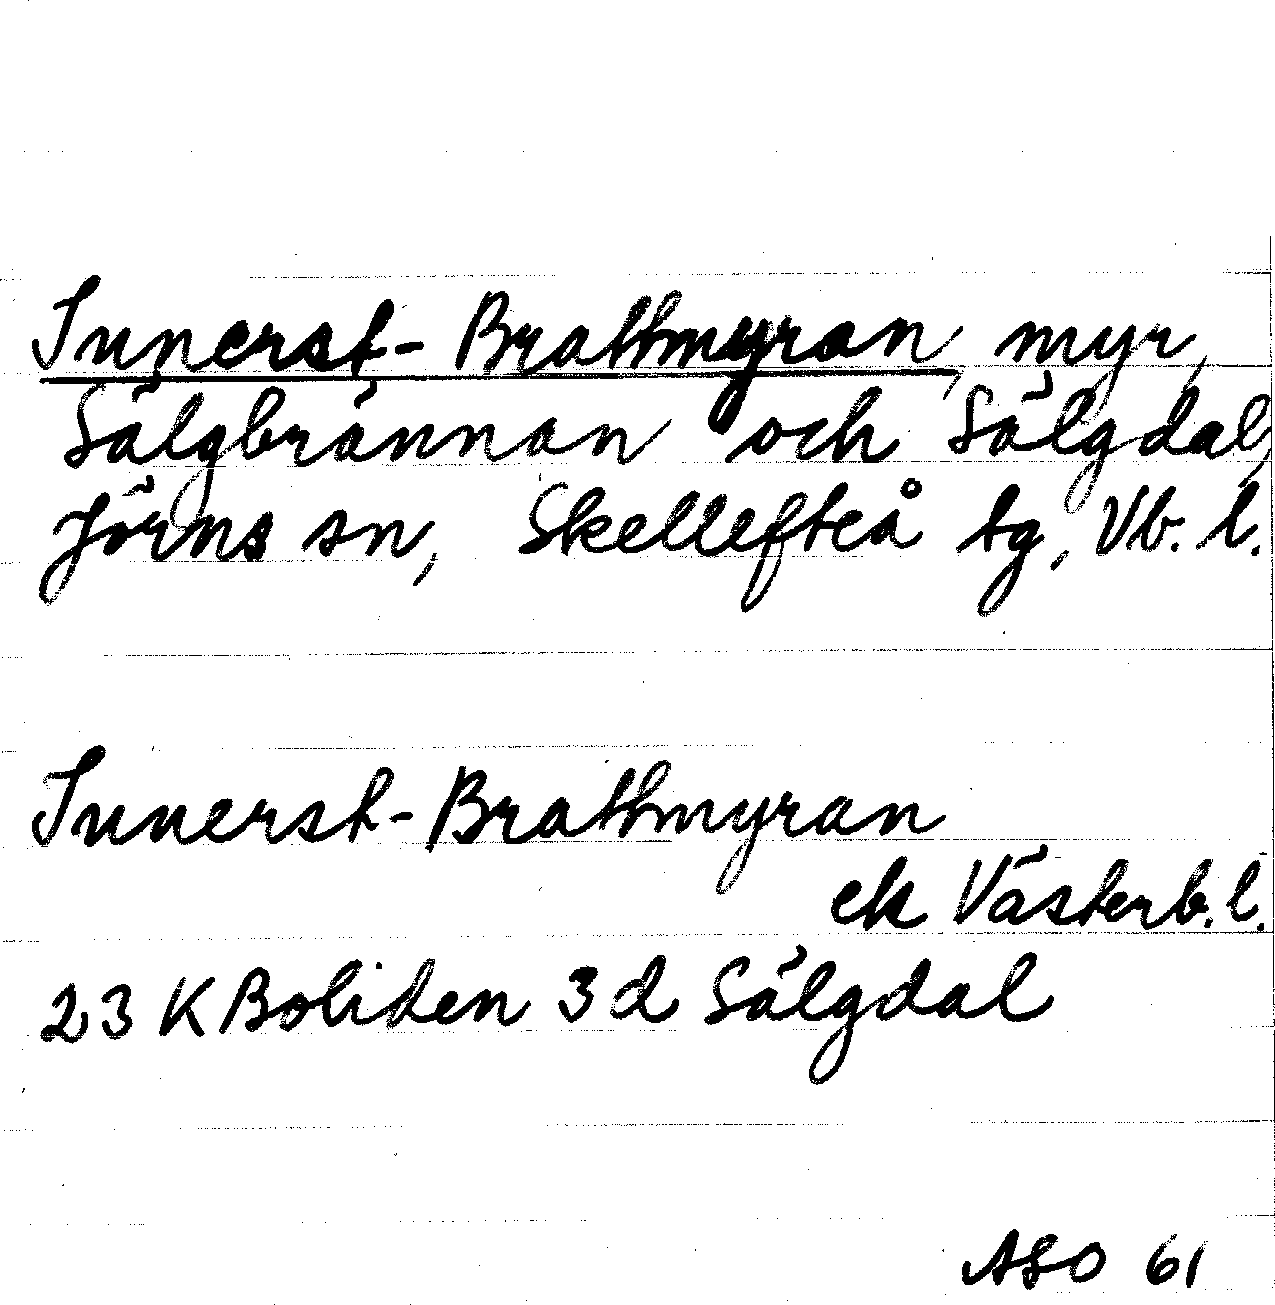 Innerst-Brattmyran, myr,
Sälgbrännan och Sälgdal,
Jörns sn, Skellefteå tg, Vb. l.
Innerst-Brattmyran
ek Västerb. l.
23 K Boliden 3 d Sälgdal
ASO 61